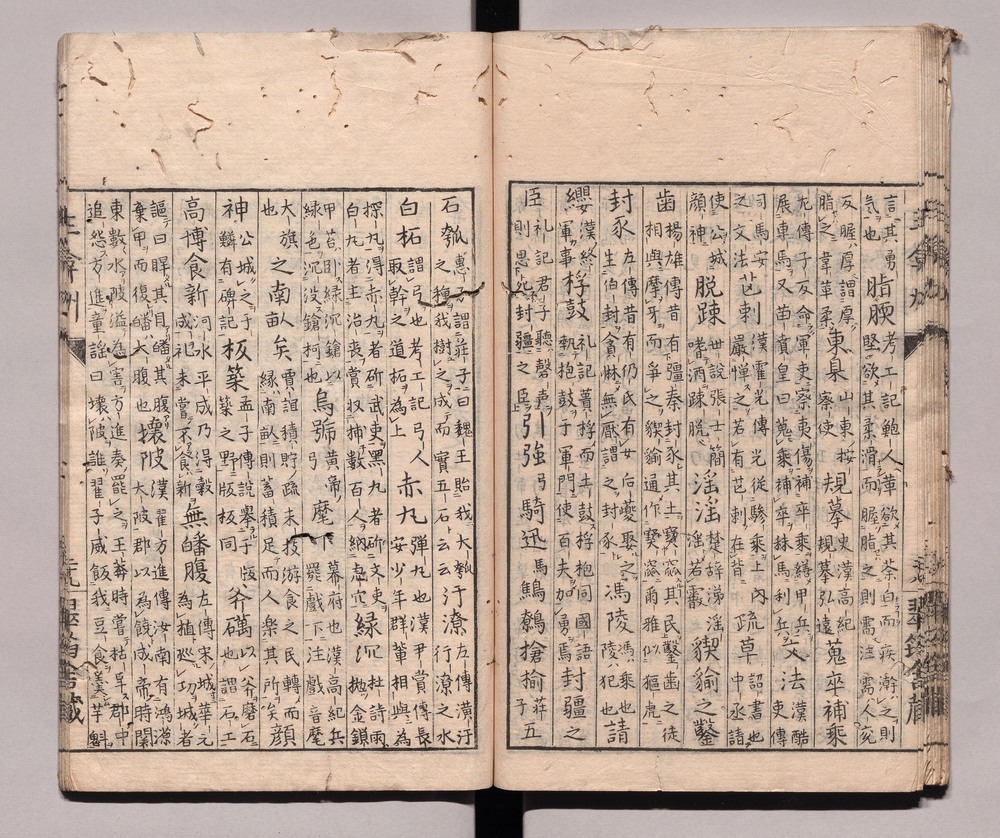 言其勇
気也
考工記鮑人革欲其荼白而疾澣之則
堅欲其柔滑而腥脂之則需注需人兗
反腥厚謂厚
脂之韋革柔
山東按
察使
規摹
史漢高紀
規摹弘遠
蒐卒補乘
左傳子反命軍吏察夷傷補卒乘繕甲兵
展車馬又苗賁皇曰蒐乘補卒秣馬利兵
文法
漢酷
吏傳
司馬安
之文法
芒刺
漢霍光傳光從驂乘上内
嚴憚之若有芒刺在背
疏草
詔書也
中丞請
使公城
顔神
脱踈
世說張士簡
嗜酒踈脱
淫淫
楚辞涕淫
淫若霰
猰㺄之鑿
歯
楊雄傳昔有疆秦封豕其土窫窳其民鑿歯之徒
相與摩牙而爭之猰㺄通作窫窳爾雅似貙虎
封豕
左傳昔有仍氏有女后夔娶之
生伯封貪惏無厭謂之封豕
馮陵
馮乘也
陵犯也
請
纓
漢終
軍事
桴鼓
礼記蕢桴而土鼓桴枹同國語
執枹鼓于軍門使百夫加勇焉
封疆之
臣
礼記君子聽磬声
則思死封疆之臣
引強弓騎迅馬鷦鷯搶揄
莊
五
石瓠
惠子謂莊子曰魏王貽我大瓠
之種我樹之成而實五石云云
汙潦
左傳潢汙
行潦之水
白柘
謂弓也考工記弓人
取幹之道柘為上
赤丸
弾丸也漢尹賞傳長
安少年群輩相與為
探丸得赤丸者斫武吏黒丸者斫文吏
白丸者主治喪賞収捕數百人納恵穴
緑沉
杜詩雨
抛金鎖
甲苔臥緑沉鎗以
緑色沉没鎗柯也
烏號
黄帝
弓
麾下
幕府也漢高紀兵
罷戯下注戯音麾
大旗
也
之南畝矣
賈誼積貯疏末技游食之民轉而
縁南畝則蓄積足而人樂其所矣
顔
神
公城之于
鱗有碑記
板築
孟子傳說舉于版
築之野版板同
斧礪
山也以斧磨石
謂石工
高博食新
河水平成乃得穀
成祀未嘗不食新
無皤腹
左傳宋城華元
為植巡功城者
謳曰睅其目皤其腹
棄甲而復皤大腹也
壊陂
漢翟方進傳汝南有鴻隙
大陂郡以為饒成帝時関
東數水陂溢為害方進奏罷之王莽時嘗枯旱郡中
追怨方進童謠曰壊陂誰翟子威飯我豆食羹芋魁